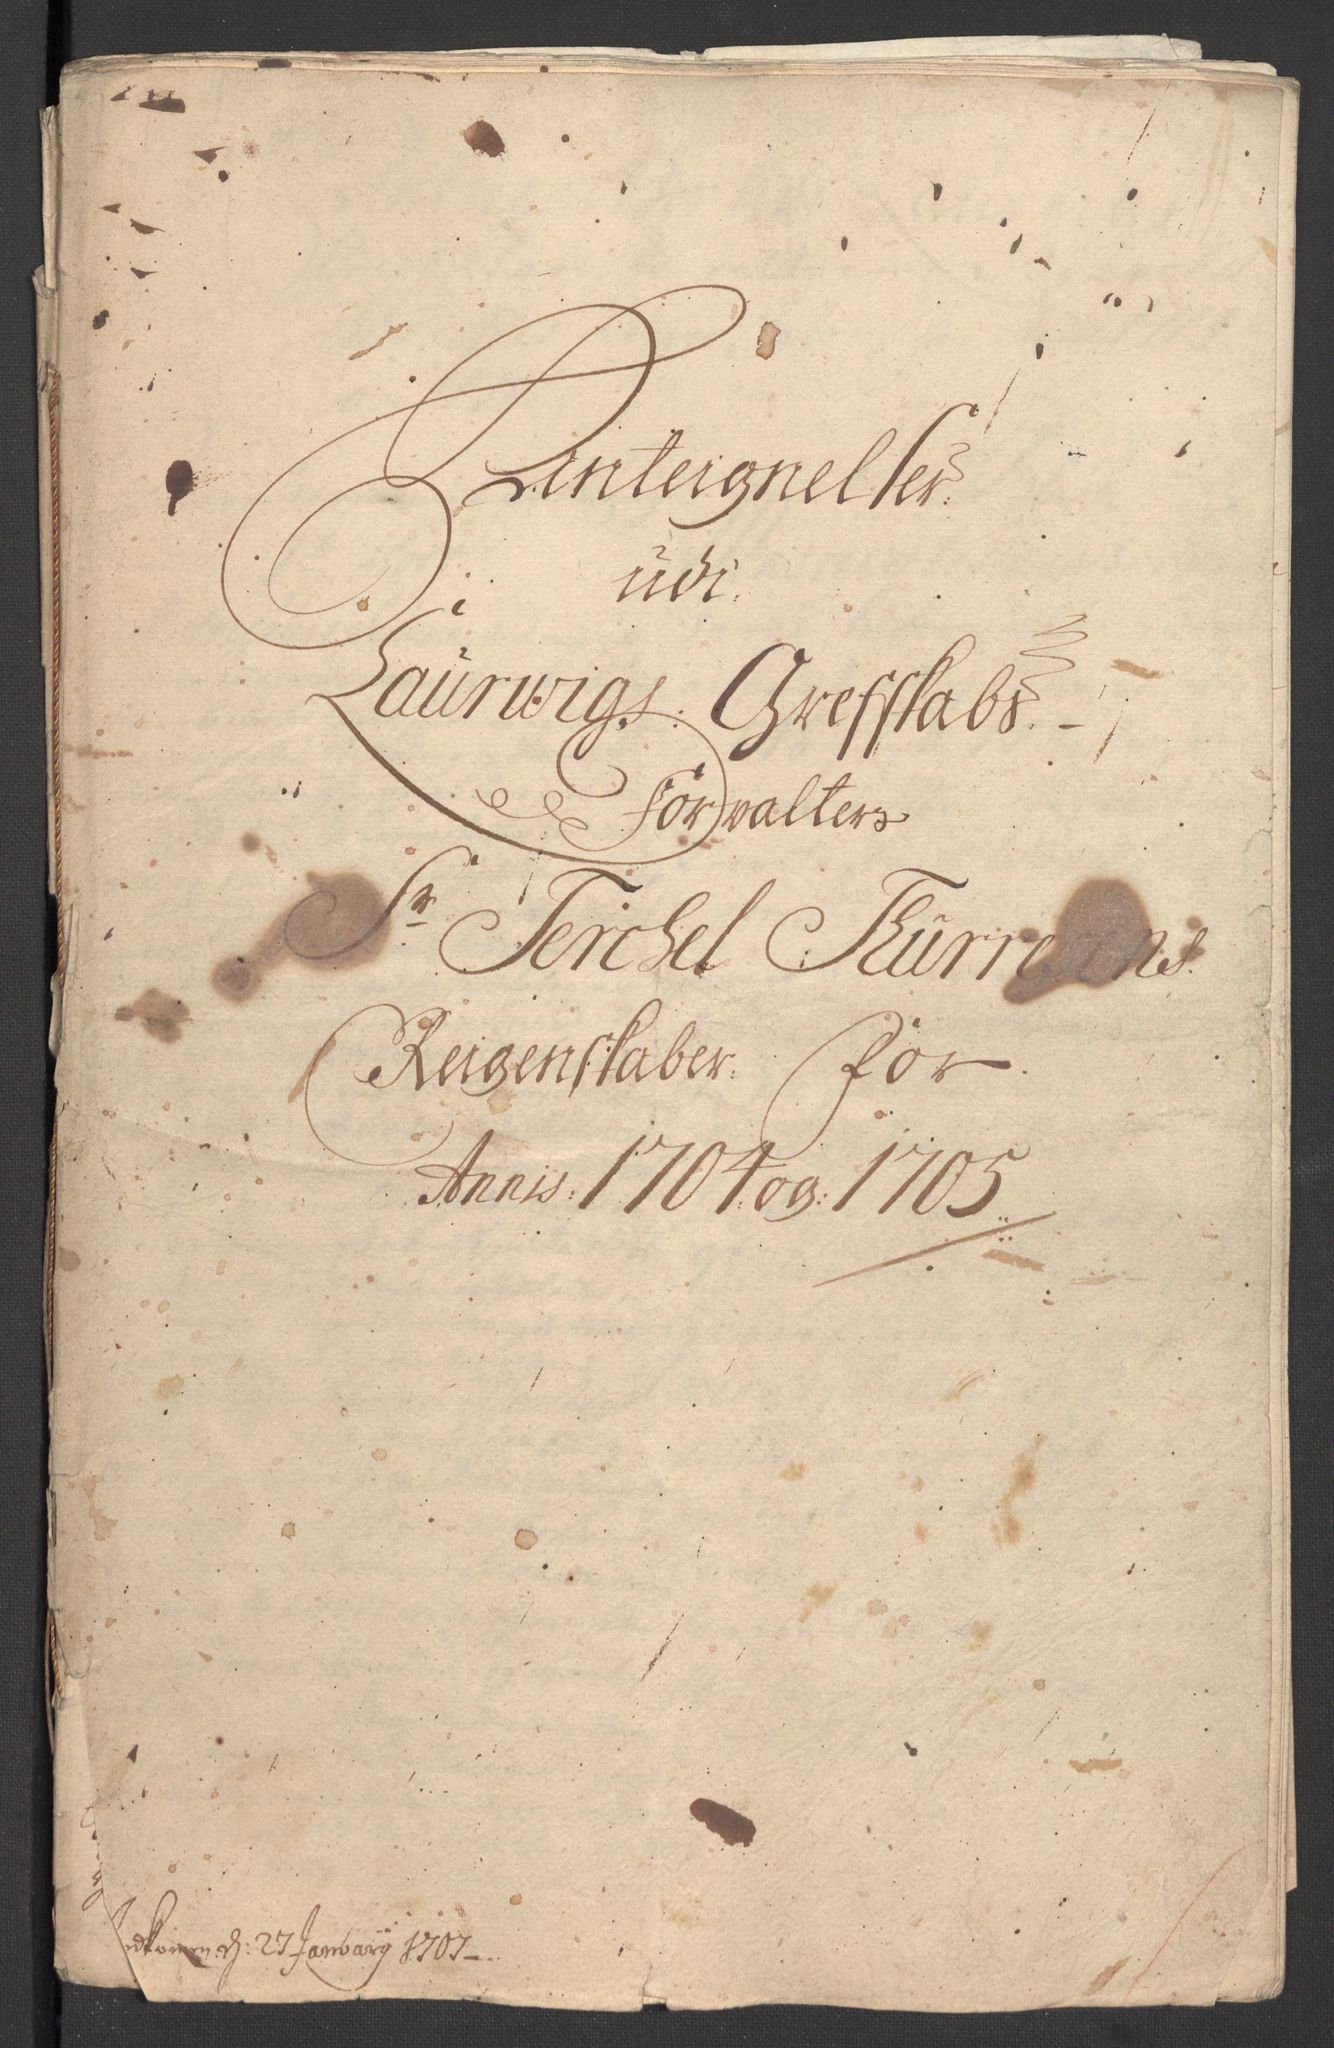 Anteignelser
udi
Laürwigs Grefskabs
Forvalters
Sr Terchel
Reigenskaber for
Annis: 1704 og: 1705
Indkomm. d: 27 January 1707